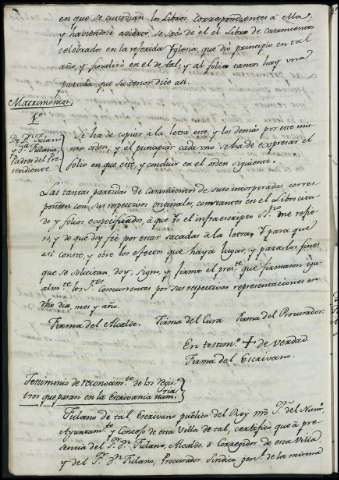 en que se custodian los Libros correspondientes a ella,
y haviendose avierto, se sacó de él el Libro de casamientos
celebrado en la referida Yglesia, que dio principio en tal
año, y finalizó en el de tal, y al folio tantos hay una
partida que su tenor dice asi.
Matrimonios.
1º
De Dn. Fulano
y Da. Fulana,
Padres del Pre-
tendiente
Se ha de copiar a la letra esta, y los demas por este mis-
mo orden, y al principiar cada una se ha de expresar el
folio en que esté, y concluir en el orden siguiente.
Las tantas partidas de casamientos de suso incorporadas corres-
ponden con sus respectivos originales, constantes en el Libro cita-
do y folios especificados, à que Yo el infraescripto Ssno. me refie-
ro, y de que doy fé por estar sacadas a la letra: Y para que
asi conste, y obre los efectos que haya lugar, y para los fines
que se solicitan doy, signo, y firmo el preste. que firmaron igu-
almte. los Sres. Concurrentes por sus respectivas representaciones en
dho dia, mes y año.
Firma del Alcalde. Firma del Cura Firma del Procurador.
En testimº. + de verdad
Firma del Escrivano
Testimonio de reconocimto. de los Regis-
tros que paran en la Escrivania num.ria
Fulano de tal Escrivano publico del Rey nro Sr. del Num.
Ayuntamto. y Concejo de esta Villa de tal, certifico que à pre-
sencia del Sr. Dn. Fulano, Alcalde ó Corregidor de esta Villa
y del Sr. Dn. Fulano, Procurador Sindico genl. de la misma